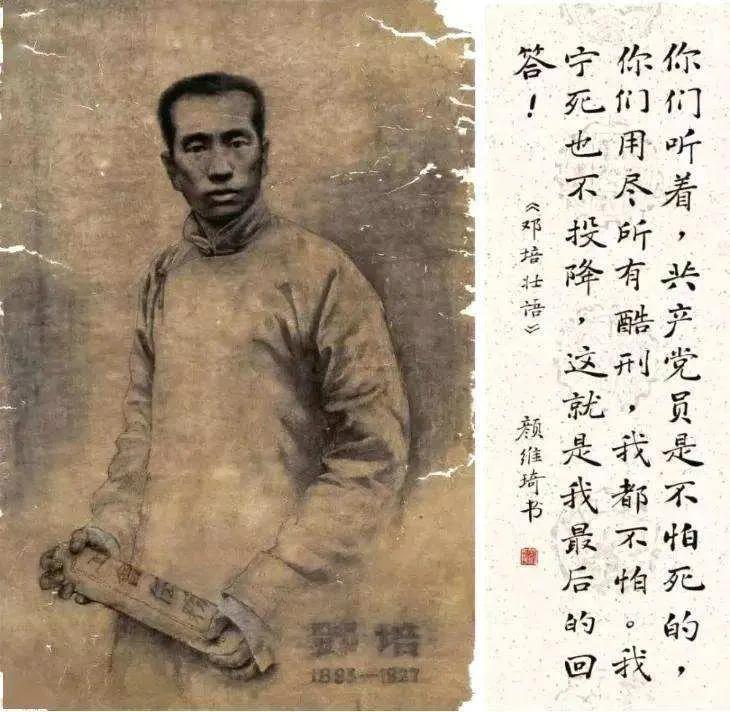 你们听着，共产党员是不怕死的，
你们用尽所有酷刑，我都不怕。我
宁死也不投降，这就是我最后的回
答！
《邓培壮语》
颜维琦书
鄧培
1883—1927